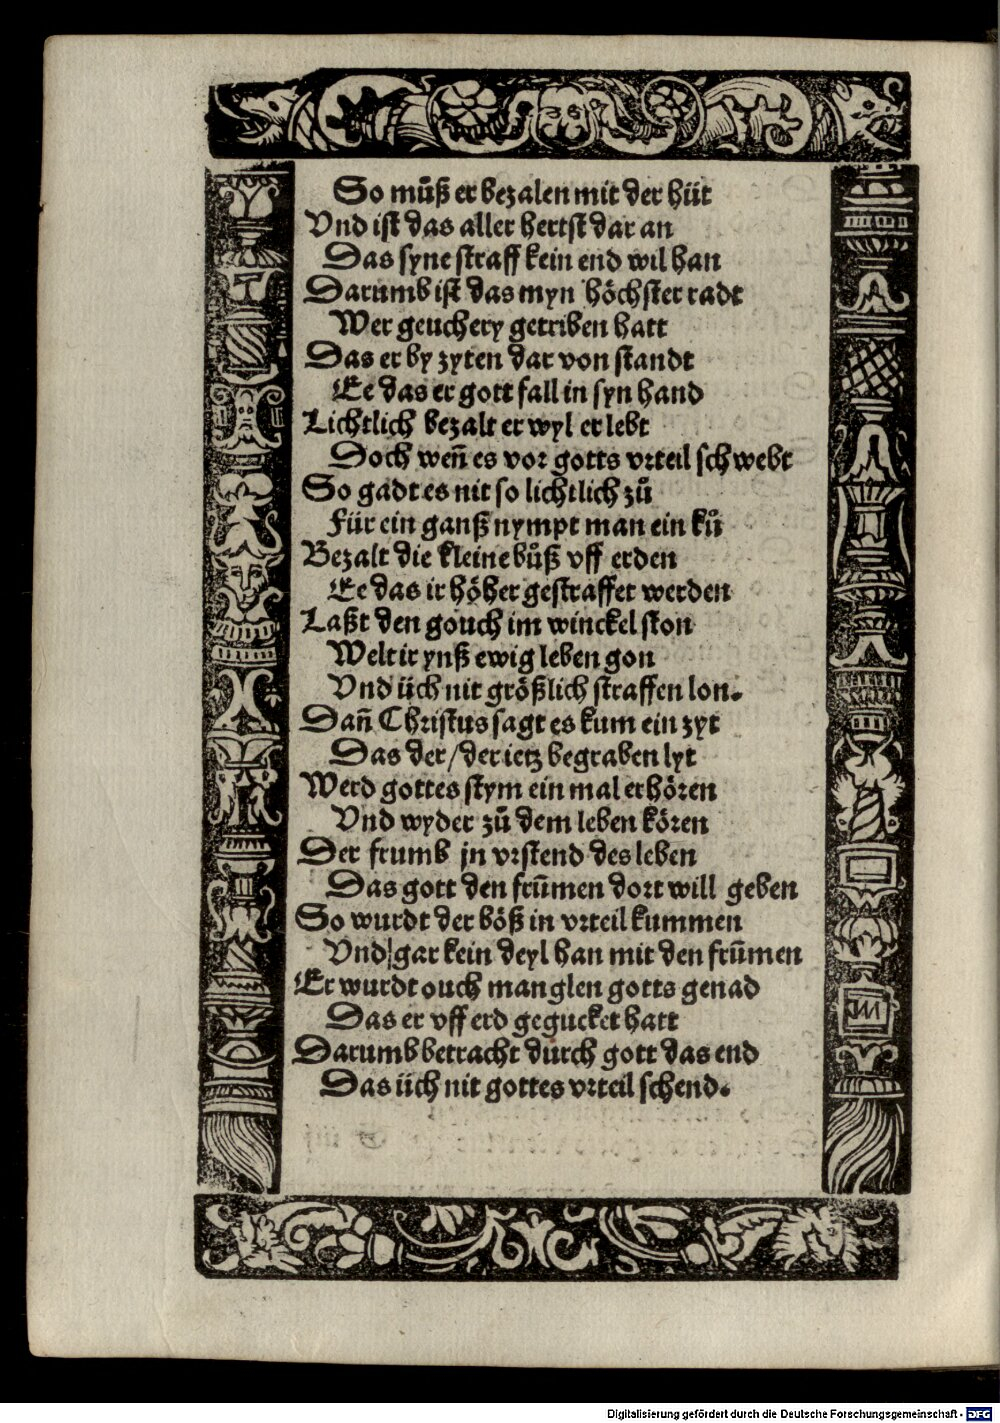 So muͦß er bezalen mit der hüt
Vnd ist das aller hertst dar an
Das syne straff kein end wil han
Darumb ist das myn höchster radt
Wer geuchery getriben hatt
Das er by zyten dar von standt
Ee das er gott fall in syn hand
Lichtlich bezalt er wyl er lebt
Doch wen̄ es vor gotts vrteil schwebt
So gadt es nit so lichtlich zuͦ
Für ein ganß nympt man ein kuͦ
Bezalt die kleine buͦß vff erden
Ee das ir höher gestraffet werden
Laßt den gouch im winckel ston
Welt ir ynß ewig leben gon
Vnd üch nit größlich straffen lon.
Dan̄ Christus sagt es kum ein zyt
Das der/ der ietz begraben lyt
Werd gottes stym ein mal erhören
Vnd wyder zuͦ dem leben kören
Der frumb jn vrstend des leben
Das gott den frūmen dort will geben
So wurdt der böß in vrteil kummen
Vnd gar kein deyl han mit den frūmen
Er wurdt ouch manglen gotts genad
Das er vff erd gegucket hatt
Darumb betracht durch gott das end
Das üch nit gottes vrteil schend.
Digitalisierung gefördert durch die Deutsche Forschungsgemeinschaft - DFG